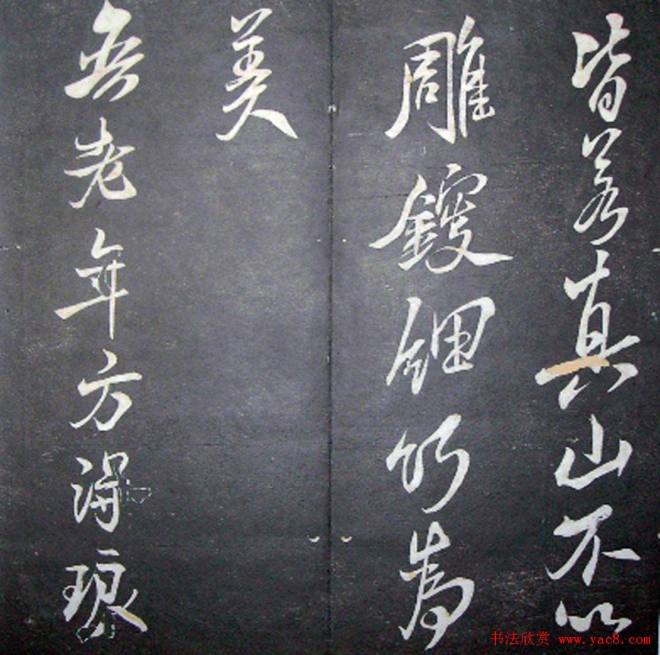 皆若真山不以
雕鎪細巧為
美
吾老年方得琅
书法欣赏 www.yac8.com